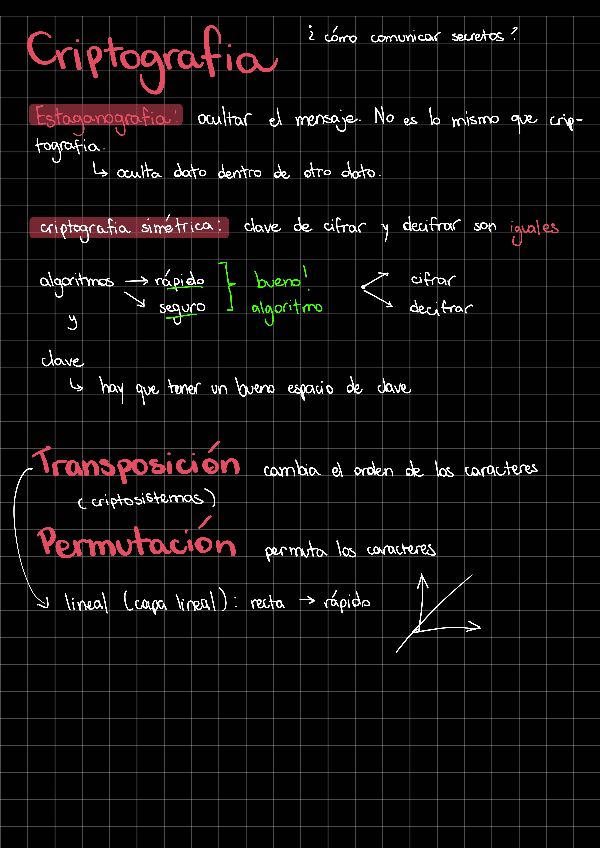 Criptografia ¿ cómo comunicar secretos?
Estaganografia: ocultar el mensaje. No es lo mismo que crip-
tografia.
↳ oculta dato dentro de otro dato.
criptografia simétrica: clave de cifrar y decifrar son iguales
algoritmos → rápido bueno! cifrar
↘ seguro algoritmo decifrar
y
clave
↳ hay que tener un bueno espacio de clave
Transposición cambia el orden de los caracteres
(criptosistemas)
Permutación permuta los caracteres
lineal (capa lineal): recta → rápido